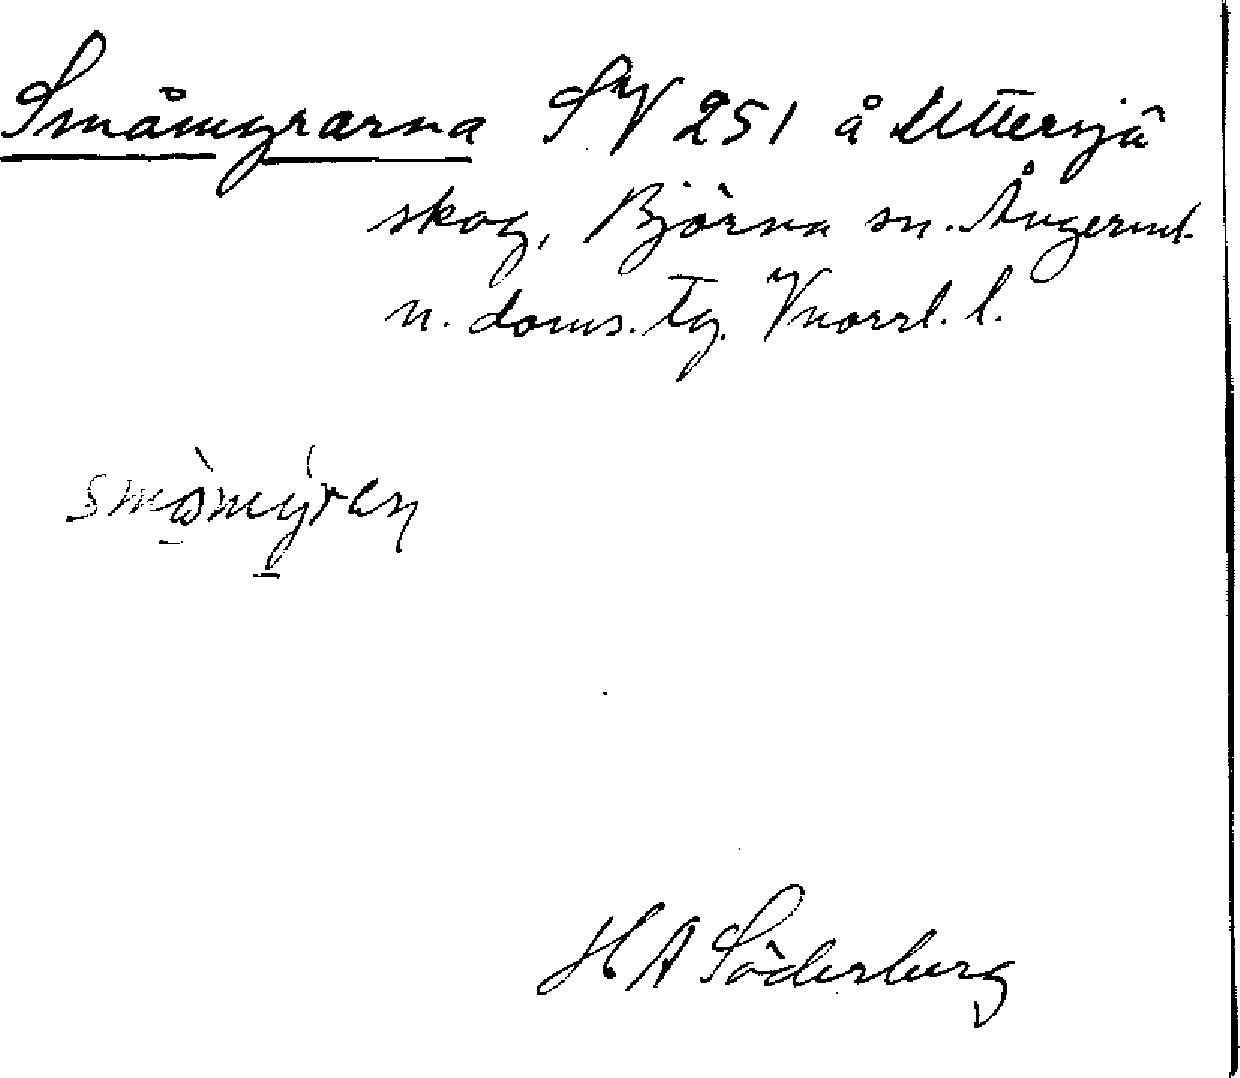 Småmyrarna SV 251 å Uttersjö
skog, Björna sn. Ångerml.
n. doms. tg. Vnorrl. l.
smòmýren
H A Söderberg